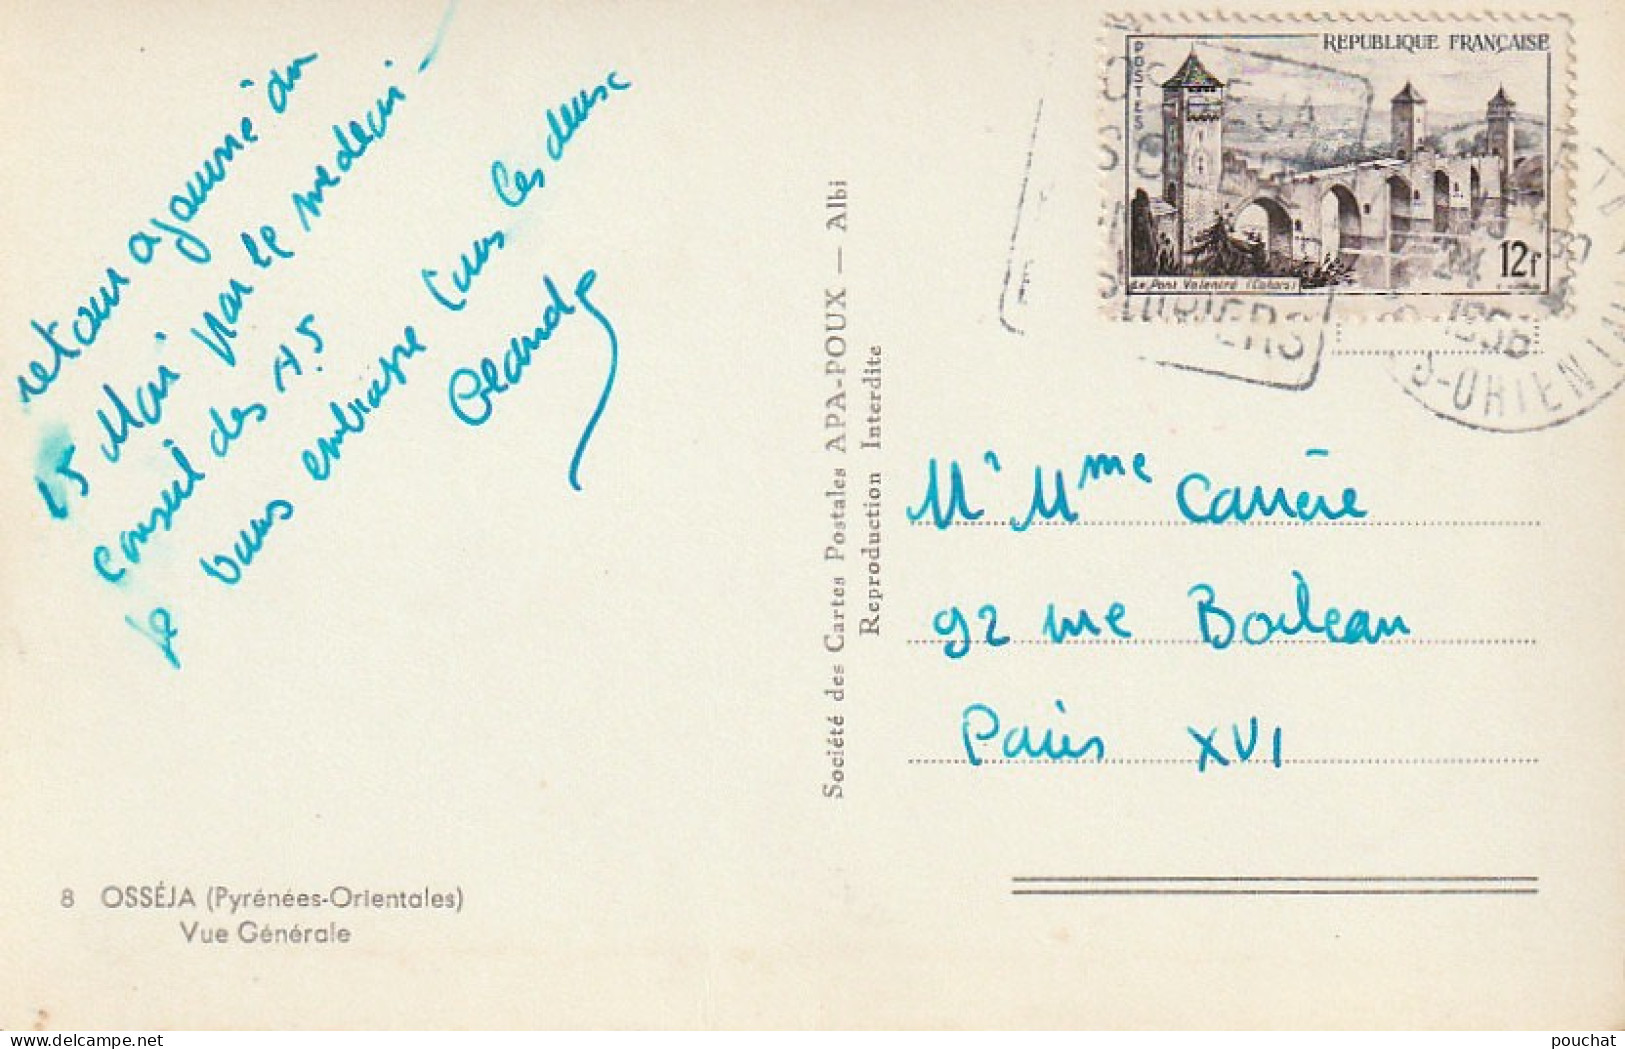 retour ajourné du
15 Mai par le medecin -
conseil des A.S
Je vous embrasse tous les deux
Claude
8 OSSÉJA (Pyrénées-Orientales)
Vue Générale
Société des Cartes Postales APA-POUX — Albi
Reproduction Interdite
REPUBLIQUE FRANÇAISE
POSTES
12f
Le Pont Valentré (Cahors)
OSSEJA
24
1956
S-ORIENTALES
Mr Mme Carrère
92 rue Boileau
Paris XVI
pouchat